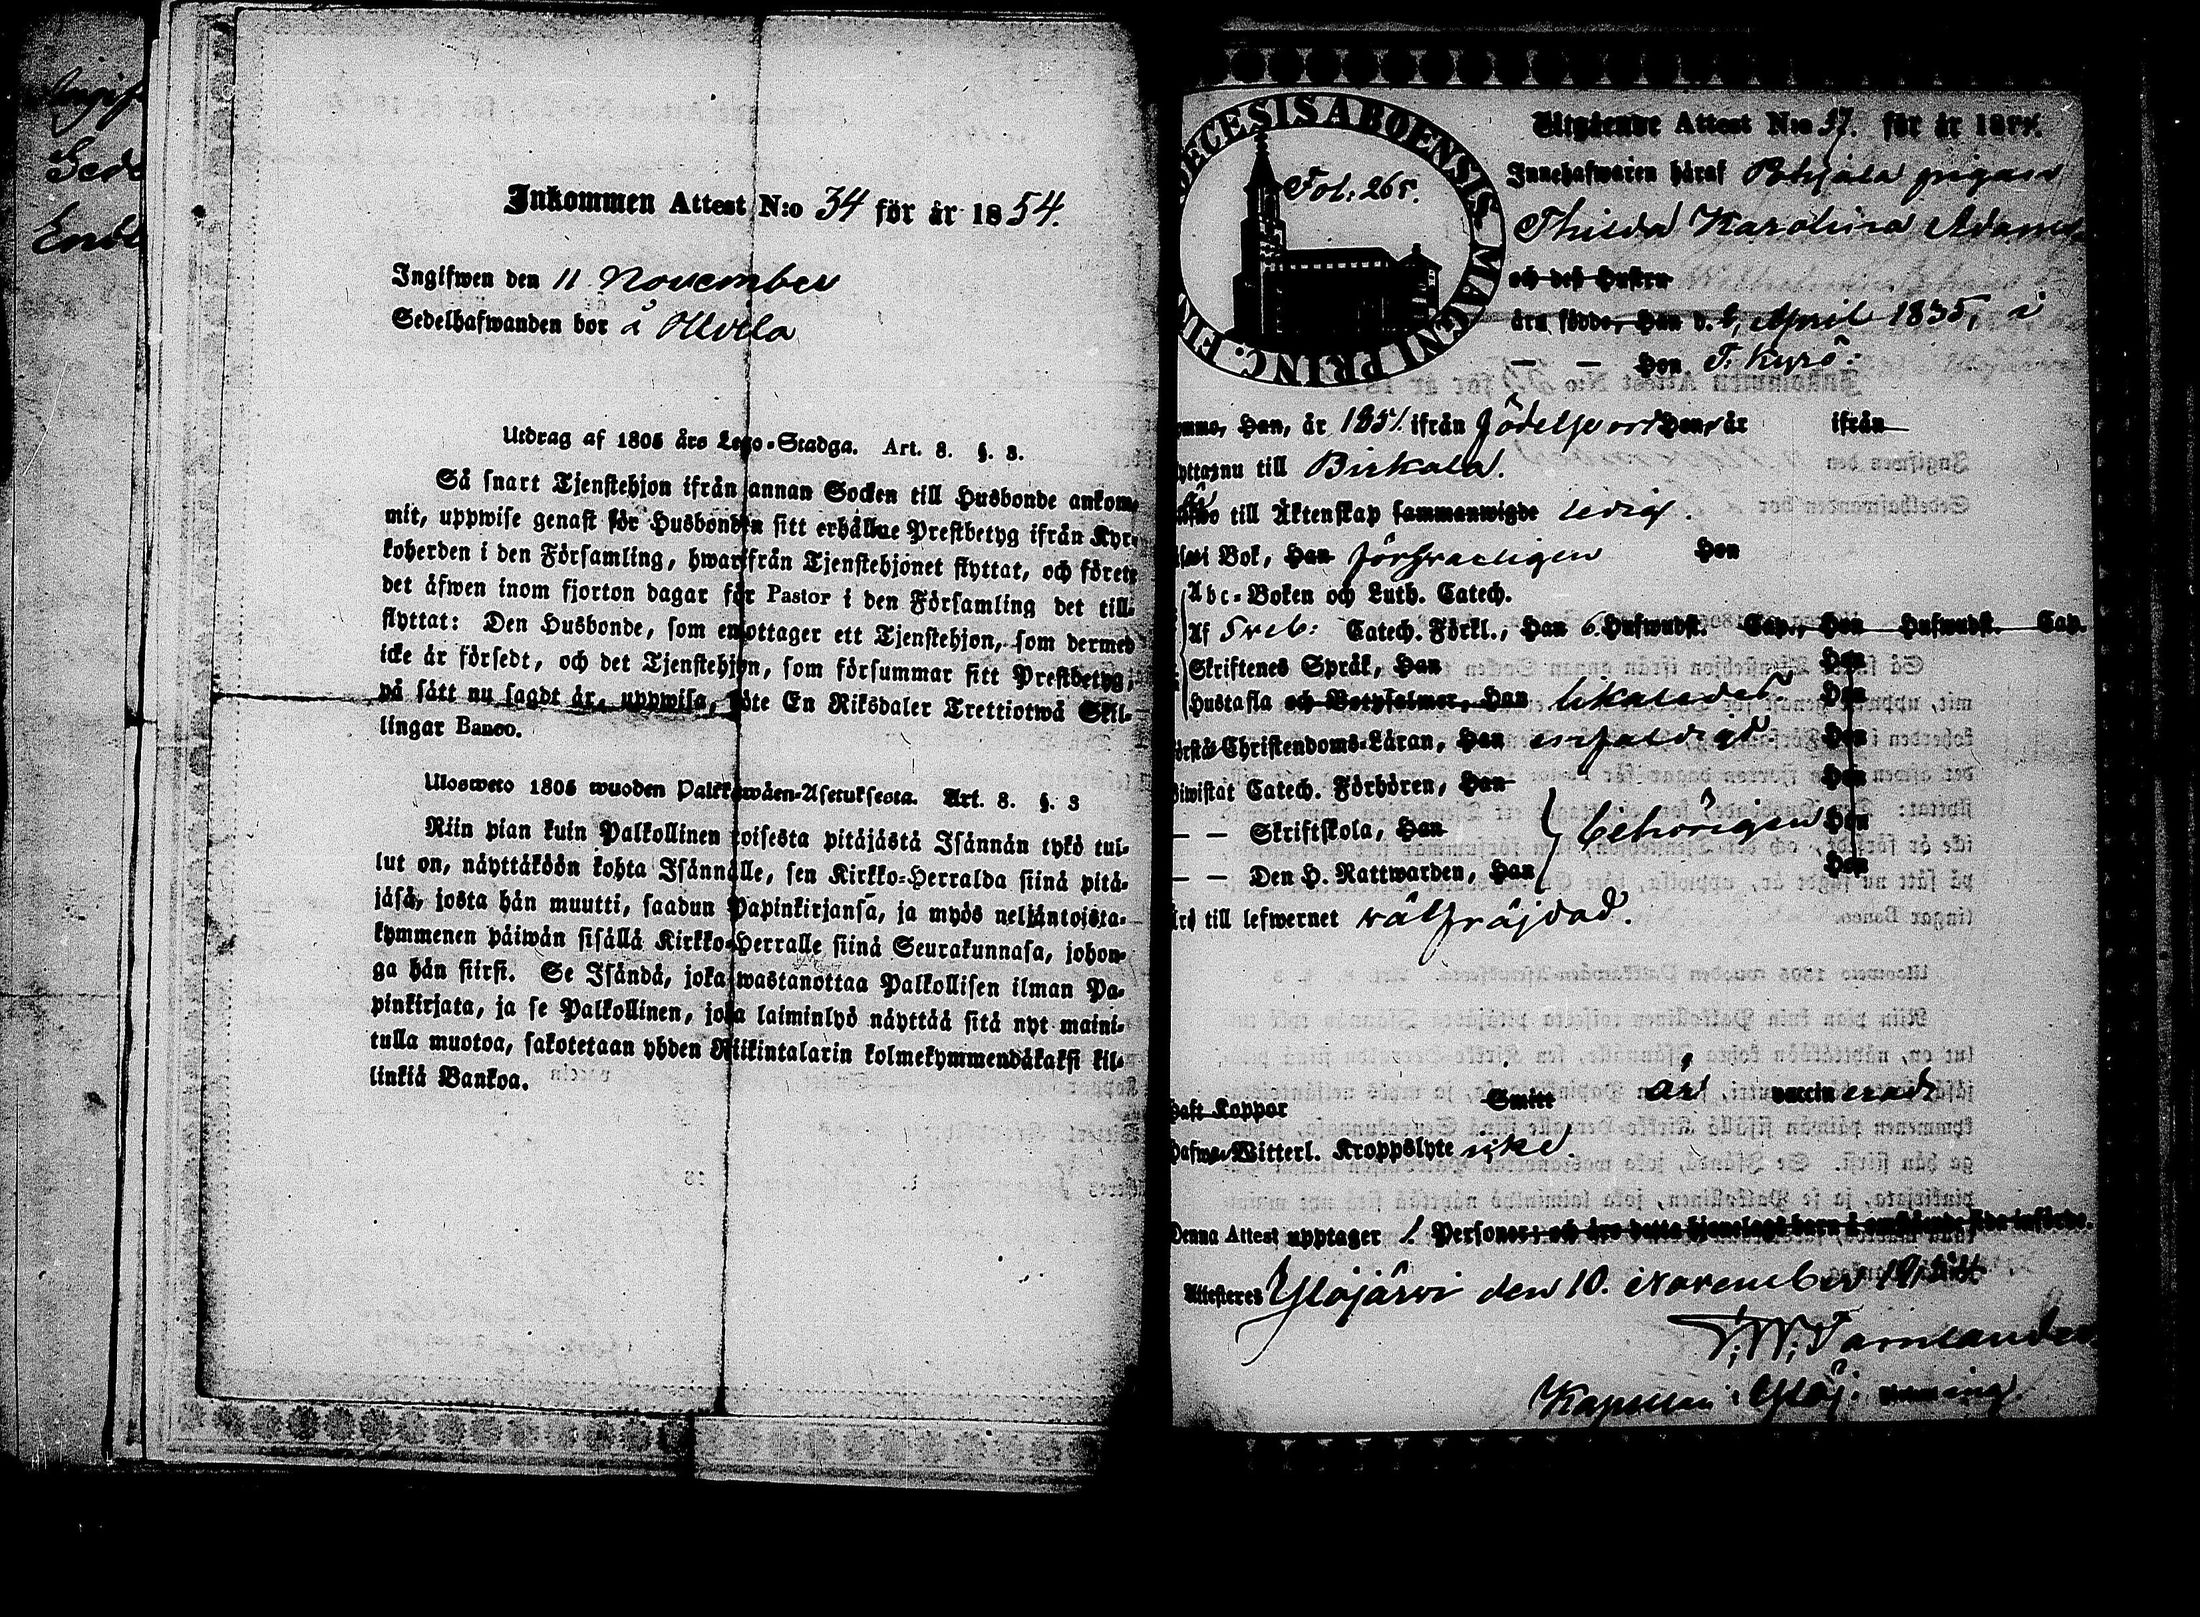 Gede
Inkommen Attest N:o 34 för år 1854.
Ingifwen den 11 November
Sedelhafwanden bor å Ollila
Utdrag af 1805 års Lego-Stadga. Art. 8. §. 3.
Så snart Tjenstehjon ifrån annan Socken till Husbonde ankom-
mit, uppwise genast för Husbonden sitt erhållne Prestbetyg ifrån Kyr-
koherden i den Församling, hwarifrån Tjenstehjonet flyttat, och förete
det äfwen inom fjorton dagar för Pastor i den Församling det till-
flyttat: Den Husbonde, som emottager ett Tjenstehjon, som dermed
icke är försedt, och det Tjenstehjon, som försummar sitt Prestbetyg,
på sätt nu sagdt är, uppwisa, böte En Riksdaler Trettiotwå Skil-
lingar Banco.
Ulosweto 1805 wuoden Palkkawäen-Asetuksesta. Art. 8. §. 3
Niin pian kuin Palkollinen toisesta pitäjästä Isännän tykö tul-
lut on, näyttäköön kohta Isännälle, sen Kirkko-Herralda siinä pitä-
jäsä, josta hän muutti, saadun Papinkirjansa, ja myös neljäntoista-
kymmenen päiwän sisällä Kirkko-Herralle siinä Seurakunnasa, johon-
ga hän siirsi. Se Isändä, joka wastanottaa Palkollisen ilman Pa-
pinkirjata, ja se Palkollinen, joka laiminlyö näyttää sitä nyt maini-
tulla muotoa, sakotetaan yhden Riikintalarin kolmekymmendäkaksi kil-
linkiä Bankoa.
DECESIS ABOENSIS MAGNI PRINC. FIN
Fol: 265.
Utgående Attest N:o 37. för år 1854.
Innehafwaren häraf Pohjala pigan
Thilda Karolina Adams
och deß Hustru
äro födde, Han d. 6 April 1835, i
— — Hon T. Kyrö.
Han, år 1854 ifrån födelse ort Hon, år ifrån
nu till Birkala.
till Äktenskap sammanwigde ledig.
i Bok, Han försvarligen Hon
Abc-Boken och Luth. Catech.
Af Sveb: Catech. Förkl., Han 6 Hufwudst. Cap., Hon Hufwudst. Cap.
Skriftenes Språk, Han Hon
Hustafla och Botpsalmer, Han likaledes Hon
Christendoms-Läran, Han enfaldigt Hon
Catech. Förhören, Han Hon
— — Skriftskola, Han behörigen Hon
— — Den H. Nattwarden, Han Hon
till lefwernet wälfräjdad.
haft Koppor Smitt är vaccinerad
Witterl. Kroppslyte icke.
Denna Attest upptager 1. Personer; och äro detta hjonelags barn å omstående sida införde.
Attesteres Ylöjärvi den 10. November 1854
F. W. Tamlander
Kapellan i Ylöj.